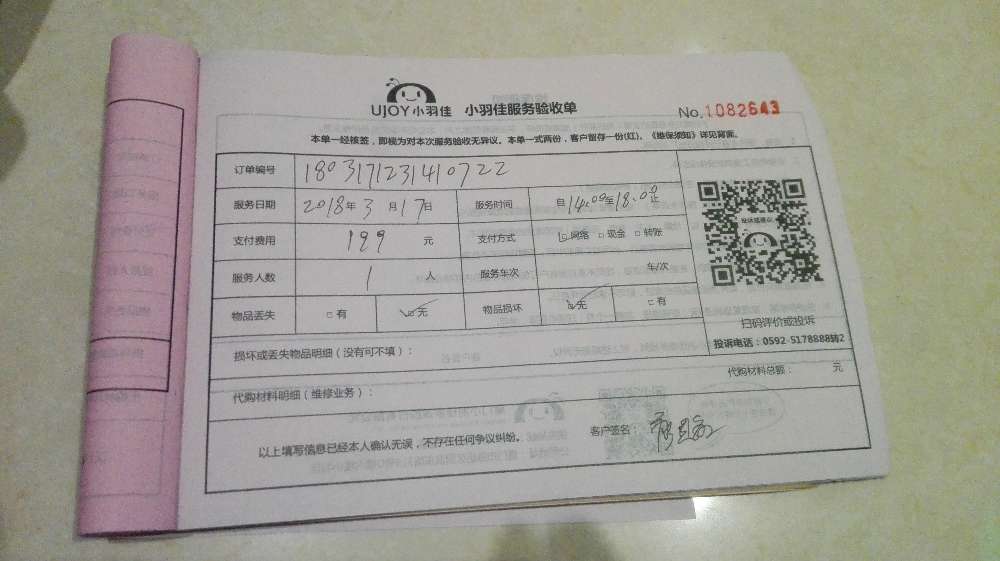 UJOY小羽佳 小羽佳服务验收单 No.1082643
本单一经核签，即视为对本次服务验收无异议。本单一式两份，客户留存一份(红)。《维保须知》详见背面。
订单编号 180317123410722
服务日期 2018年3月17日 服务时间 自14:00至18:00止
支付费用 199元 支付方式 ☑网络 □现金 □转账
服务人数 1人 服务车次 车/次
物品丢失 □有 ☑无 物品损坏 ☑无 □有
扫码评价或投诉
投诉电话：0592-5178888转2
损坏或丢失物品明细（没有可不填）：
代购材料明细（维修业务）： 代购材料总额： 元
以上填写信息已经本人确认无误，不存在任何争议纠纷。 客户签名：